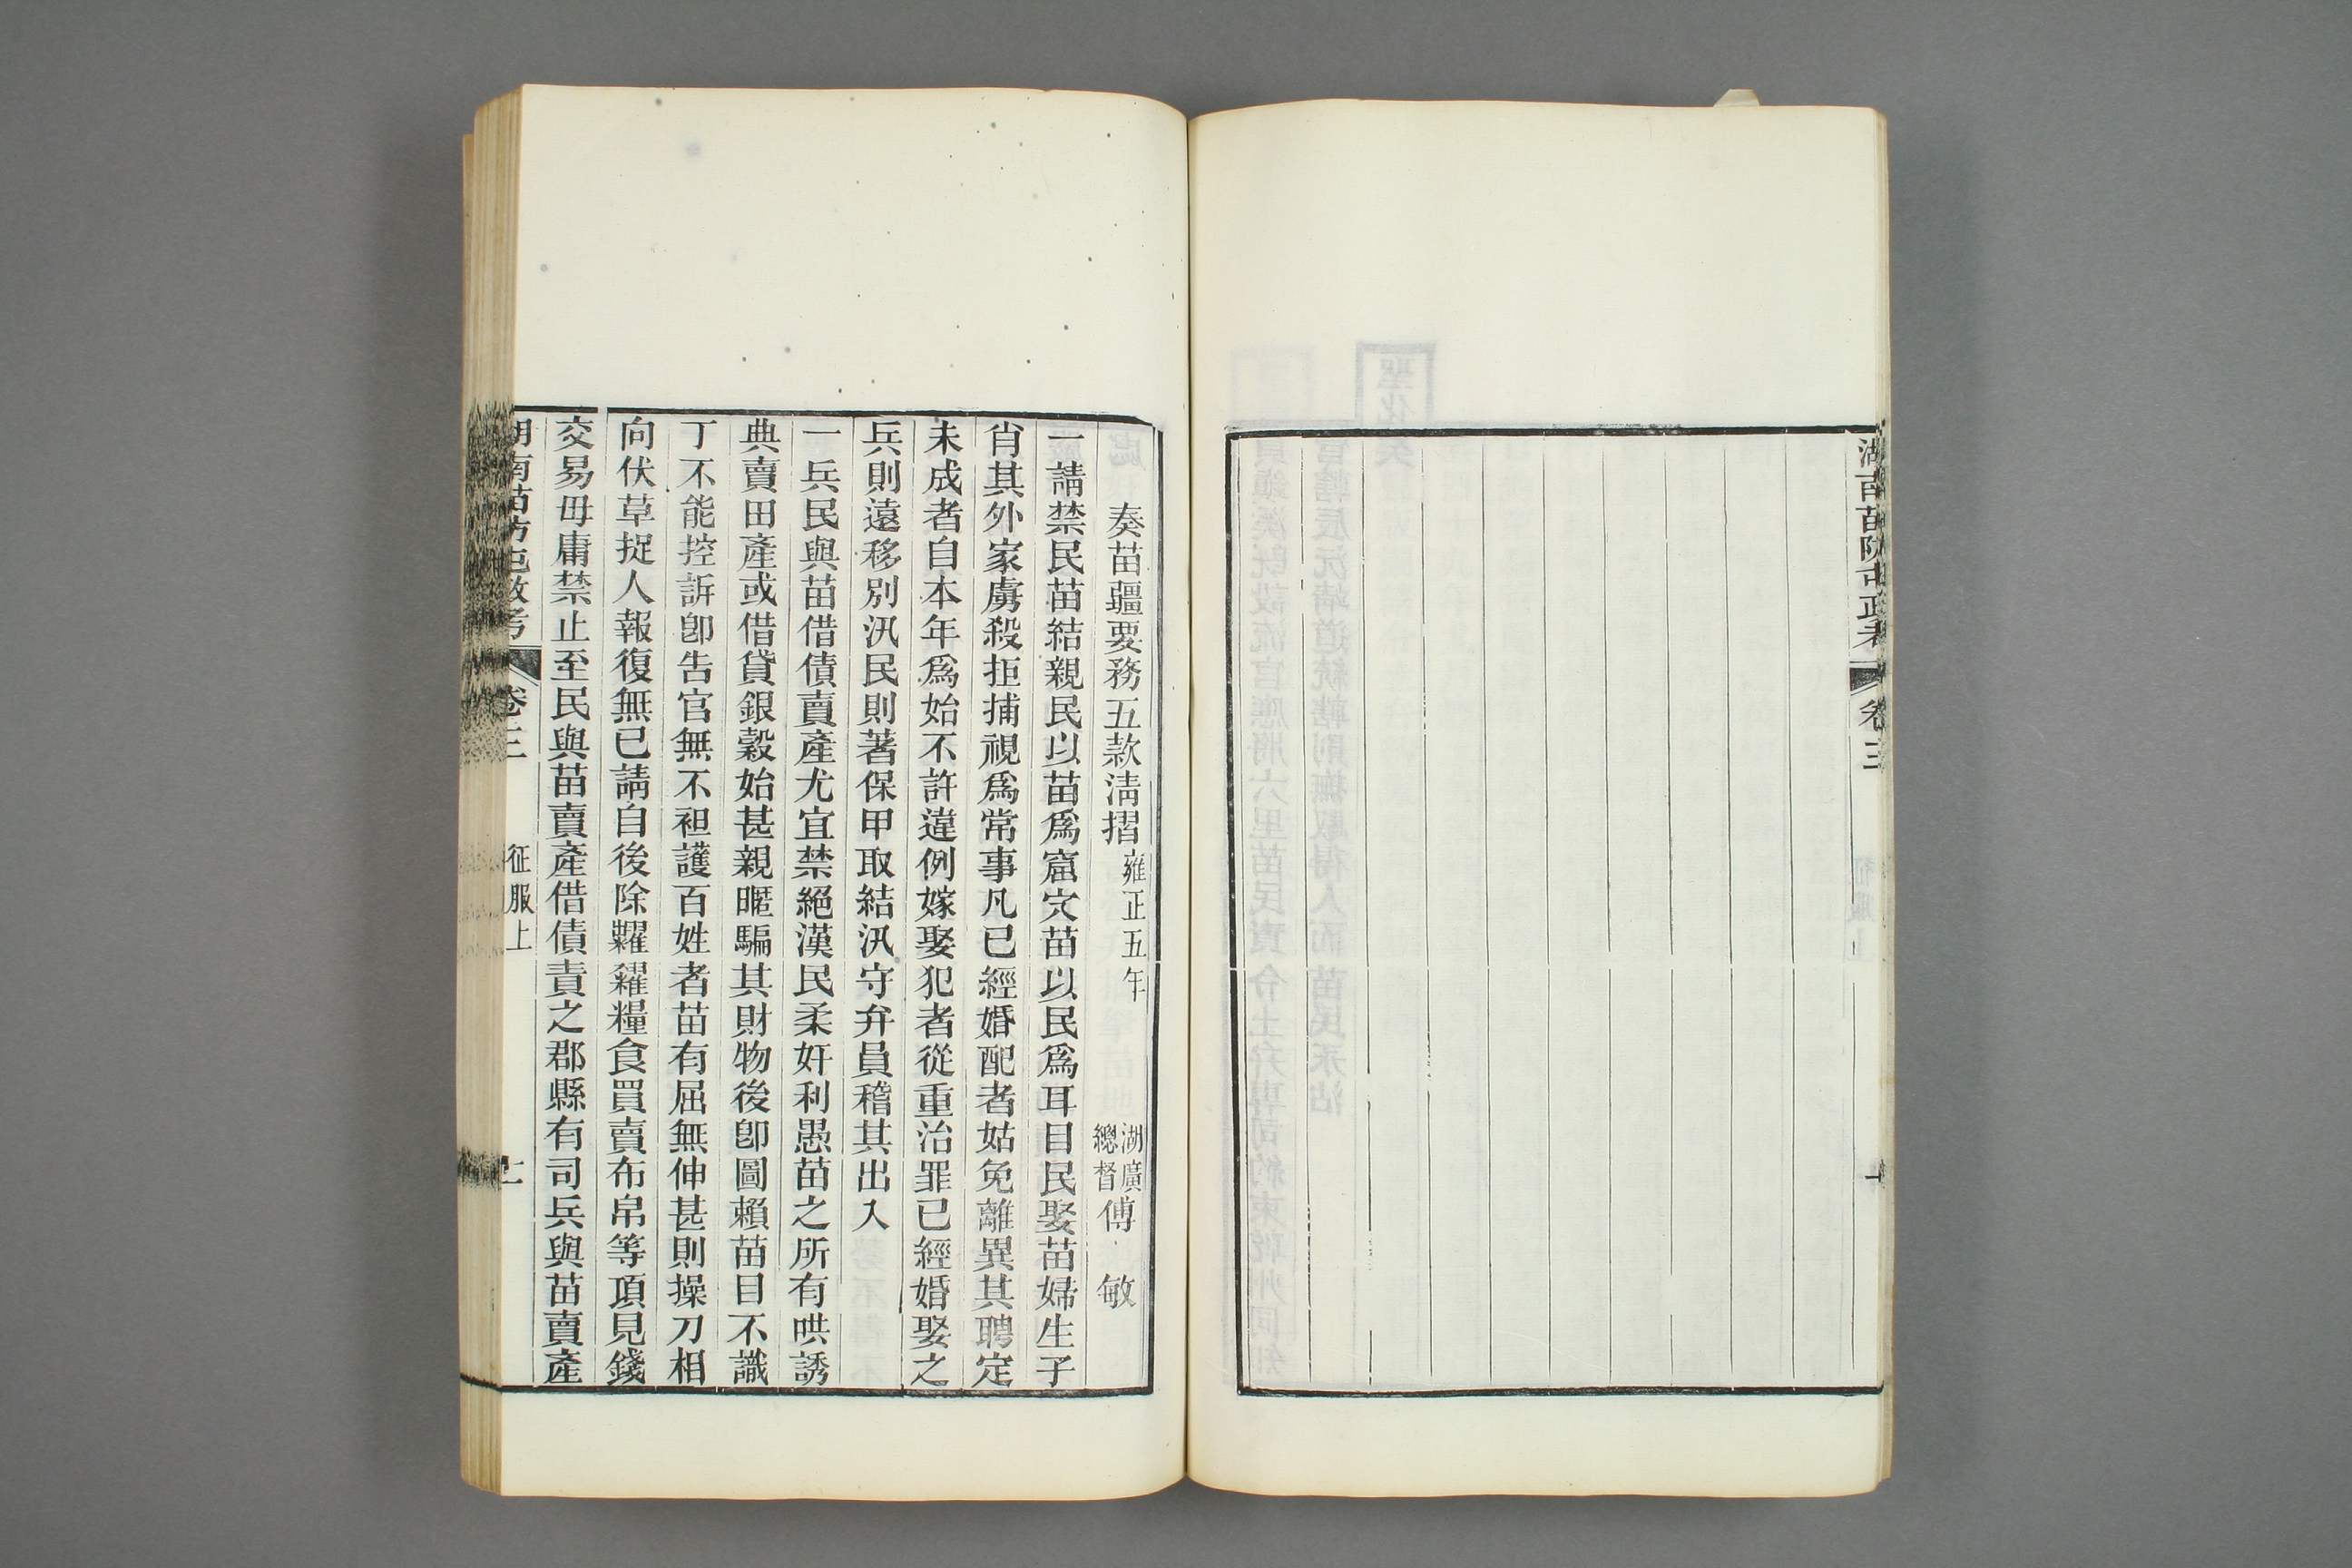 湖南苗防屯政考 卷三
奏苗疆要務五款淸摺 雍正五年 湖廣總督傅 敏
一請禁民苗結親民以苗爲窟穴苗以民爲耳目民娶苗婦生子
肖其外家虜殺拒捕視爲常事凡已經婚配者姑免離異其聘定
未成者自本年爲始不許違例嫁娶犯者從重治罪已經婚娶之
兵則遠移別汛民則著保甲取結汛守弁員稽其出入
一兵民與苗借債賣產尤宜禁絕漢民柔奸利愚苗之所有哄誘
典賣田產或借貸銀穀始甚親暱騙其財物後卽圖賴苗目不識
丁不能控訴卽吿官無不袒護百姓者苗有屈無伸甚則操刀相
向伏草捉人報復無已請自後除糶糴糧食買賣布帛等項見錢
交易毋庸禁止至民與苗賣產借債責之郡縣有司兵與苗賣產
湖南苗防屯政考 卷三 征服上 二